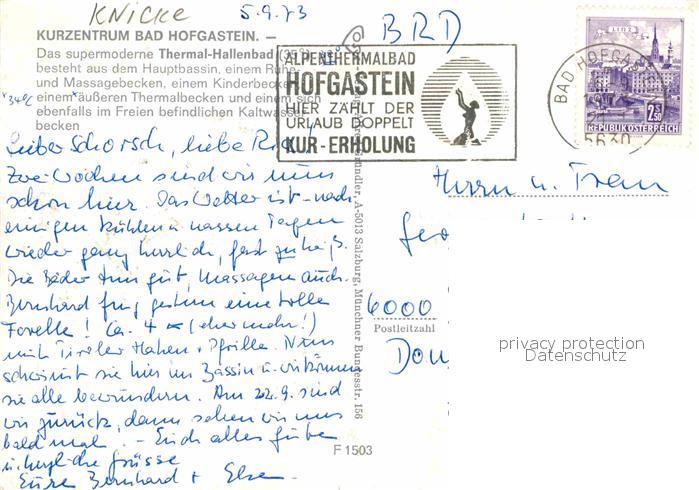 KNICKE
5.9.73
BRD
KURZENTRUM BAD HOFGASTEIN. —
Das supermoderne Thermal-Hallenbad (35°
besteht aus dem Hauptbassin, einem Ruhe-
und Massagebecken, einem Kinderbecke
*34°C einem äußeren Thermalbecken und einem sich
ebenfalls im Freien befindlichen Kaltwasse
becken
ALPENTHERMALBAD
HOFGASTEIN
HIER ZÄHLT DER
URLAUB DOPPELT
KUR-ERHOLUNG
BAD HOFGAST
5630
LINZ
2.50
REPUBLIK ÖSTERREICH
Lieber Schorsch, liebe
Zwei Wochen sind wir nun
schon hier. Das Wetter ist nach
einigen kühlen u nassen Tagen
wieder ganz herrlich, fast zu heiß.
Die Bäder tun gut, Massagen auch.
Bernhard fing gestern eine tolle
Forelle! Ca. 4 (eher mehr!)
mit Tiroler Haken + Pfrille. Nun
schwimmt sie hier im Bassin u wir können
sie alle bewundern. Am 22.9. sind
wir zurück, dann sehen wir uns
bald mal. – Euch alles Gute
u. herzliche Grüsse
Eure Bernhard + Else
Gründler, A-5013 Salzburg, Münchner Bundesstr. 156
F 1503
Herrn u. Frau
Geo
6000
Postleitzahl
Don
privacy protection
Datenschutz